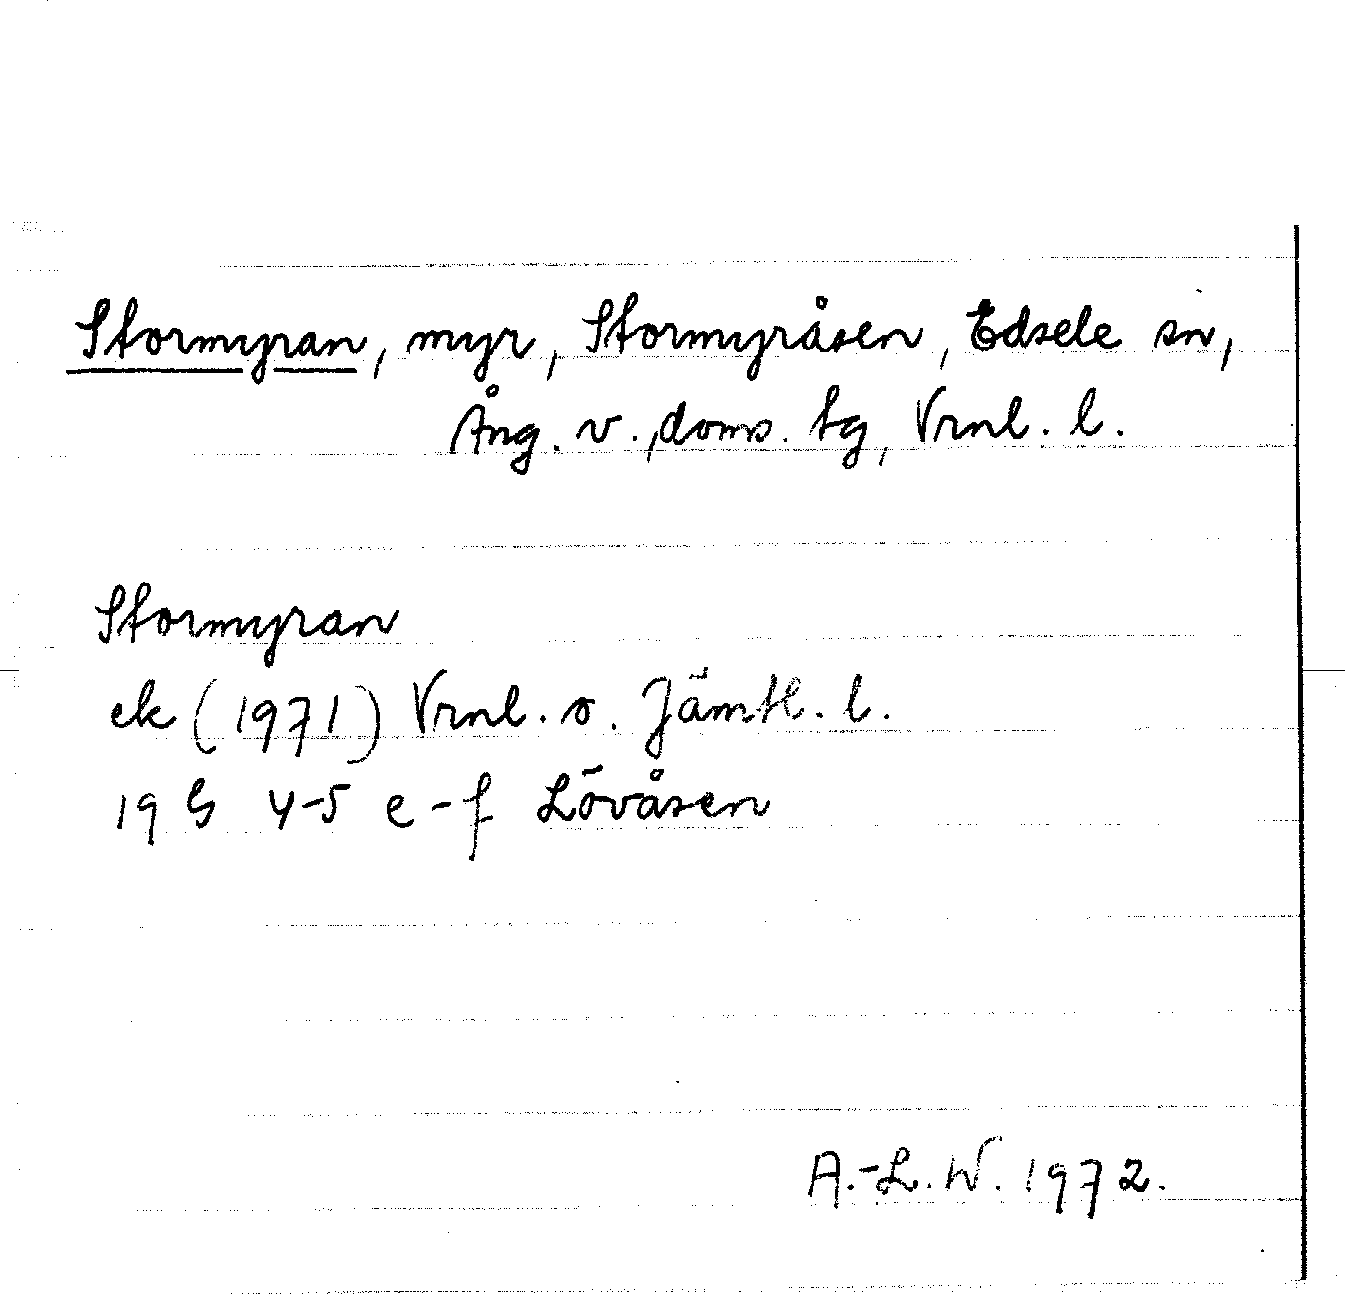 Stormyran, myr, Stormyråsen, Edsele sn,
Ång. v., doms. tg, Vrnl. l.
Stormyran
ek (1971) Vrnl. o. Jämtl. l.
19 G 4-5 e-f Lövåsen
A.-L. W. 1972.